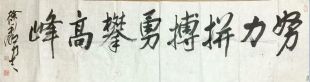 努力拼搏勇攀高峰